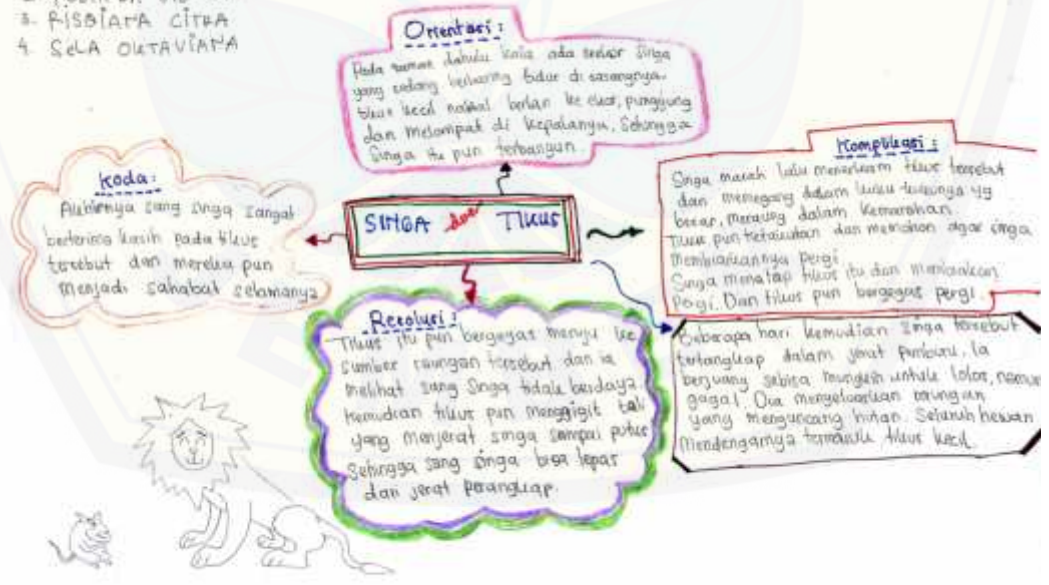 3. RISDIANA CITRA
4. SELA OKTAVIANA
Orientasi :
Pada zaman dahulu kala ada seekor singa
yang sedang berbaring tidur di sarangnya.
tikus kecil nakal berlari ke ekor, punggung
dan melompat di kepalanya, Sehingga
Singa itu pun terbangun.
Koda :
Akhirnya sang singa sangat
berterima kasih pada tikus
tersebut dan mereka pun
menjadi sahabat selamanya
SINGA dan TIKUS
Komplikasi :
Singa marah lalu menerkam tikus tersebut
dan memegang dalam kuku kukunya yg
besar, meraung dalam kemarahan
Tikus pun ketakutan dan memohon agar singa
membiarkannya pergi
Singa menatap tikus itu dan membiarkan
pergi. Dan tikus pun bergegas pergi.
Beberapa hari kemudian singa tersebut
tertangkap dalam jerat pemburu, Ia
berjuang sebisa mungkin untuk lolos, namun
gagal. Dia mengeluarkan raungan
yang mengguncang hutan. Seluruh hewan
mendengarnya termasuk tikus kecil.
Resolusi :
Tikus itu pun bergegas menuju ke
sumber raungan tersebut dan ia
melihat sang Singa tidak berdaya
kemudian tikus pun menggigit tali
yang menjerat singa sampai putus
Sehingga sang singa bisa lepas
dari jerat perangkap.